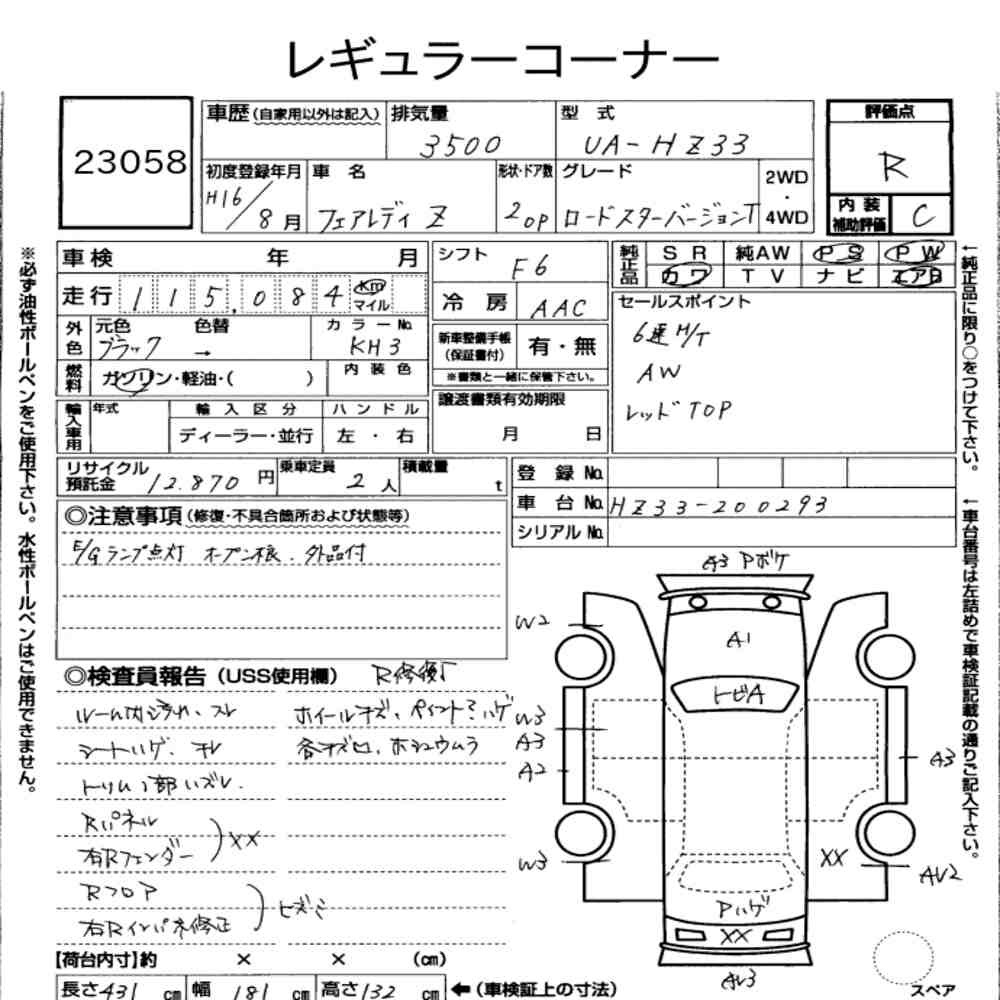 レギュラーコーナー
23058
車歴(自家用以外は記入)
排気量
3500
型 式
UA-HZ33
評価点
R
初度登録年月
H16/8月
車 名
フェアレディ Z
形状・ドア数
2 OP
グレード
ロードスターバージョンT
2WD
・
4WD
内 装
補助評価
C
車検 年 月
走行 115,084 Km
マイル
外色
元色 色替
ブラック →
カラーNo.
KH3
燃料
ガソリン・軽油・( )
内装色
輸入車用
年式
輸入区分
ディーラー・並行
ハンドル
左・右
シフト
F6
冷 房
AAC
新車整備手帳
(保証書付)
有・無
※書類と一緒に保管下さい。
譲渡書類有効期限
月 日
純正品
SR 純AW PS PW
カワ TV ナビ エアB
セールスポイント
6速M/T
AW
レッドTOP
リサイクル
預託金
12.870 円
乗車定員
2 人
積載量
t
登 録 No.
車 台 No. HZ33-200293
シリアル No.
◎注意事項(修復・不具合箇所および状態等)
E/Gランプ点灯 オープン根. 外品付
◎検査員報告 (USS使用欄)
ルーム内ヨゴレ、スレ
シートハゲ、スレ
Rパネル
右Rフェンダー
XX
Rフロア
右Rインパネ修正
【荷台内寸】約 × × (cm)
長さ431 cm 幅 181 cm 高さ132 cm
←(車検証上の寸法)
A3 Pボケ
W2
A1
トビA
W3
A3
A2
A3
W3
XX
AV2
Pハゲ
XX
AV3
スペア
※必ず油性ボールペンをご使用下さい。水性ボールペンはご使用できません。
←純正品に限り○をつけて下さい。
←車台番号は左詰めで車検証記載の通りご記入下さい。